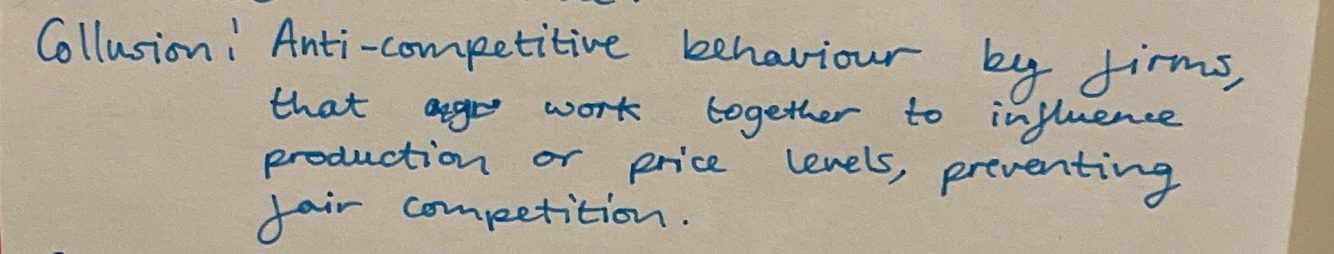 Collusion: Anti-competitive behaviour by firms,
that work together to influence
production or price levels, preventing
fair competition.